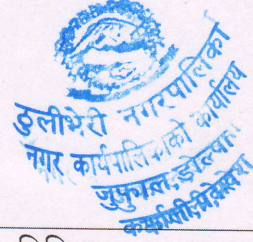 ठुलीभेरी नगरपालिका
नगर कार्यपालिकाको कार्यालय
जुफाल, डोल्पा
कर्णाली प्रदेश